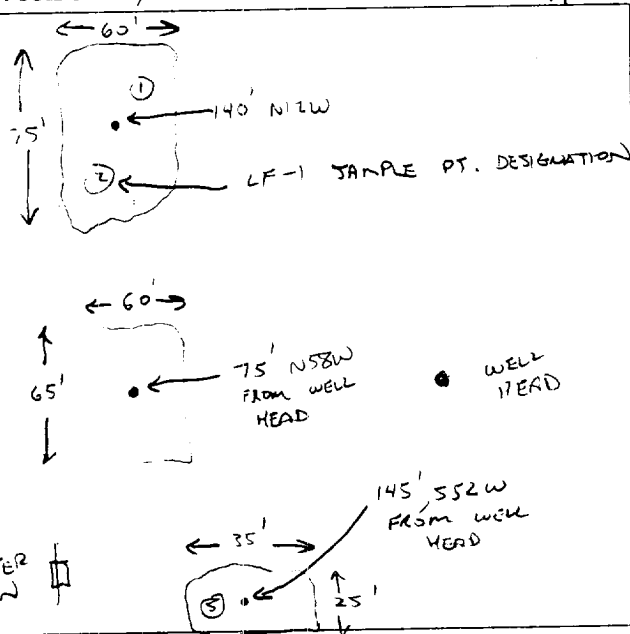 60'
①
75'
140' N12W
②
LF-1 SAMPLE PT. DESIGNATION
60'
65'
75' N58W
FROM WELL
HEAD
WELL
HEAD
145' S52W
FROM WELL
HEAD
35'
⑤
25'